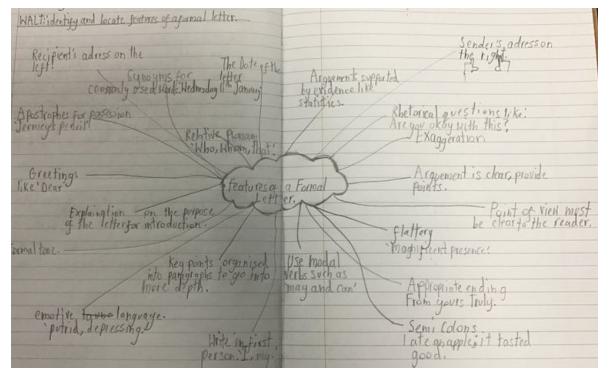 WALT: identify and locate features of a formal letter.
Recipient's adress on the
left!
Synoyms for
commonly used words.
The Date of the
letter
Wednesday 11th January
Apostraphes for possesion
pencil!
Relative Pronoun
'Who, Whom, that!'
Greetings
like 'Dear'
Features of a Formal
Letter.
Explaination on the purpose
of the letter for introduction.
formal tone.
Key points organised
into paragraphs to go into
more depth.
emotive language.
'putrid, depressing!'
Write in first
person. I, my.
Sender's adress on
the right.
Argements supported
by evidence like
statistics.
Rhetorical questions like:
Are you okay with this?
Exaggeration
Argement is clear, provide
points.
Point of view must
be clear to the reader.
flattery
'magnificent presence'
Use modal
verbs such as
may and can'
Appropriate ending
From yours Truly.
Semi Colons
I ate an apple; it tasted
good.